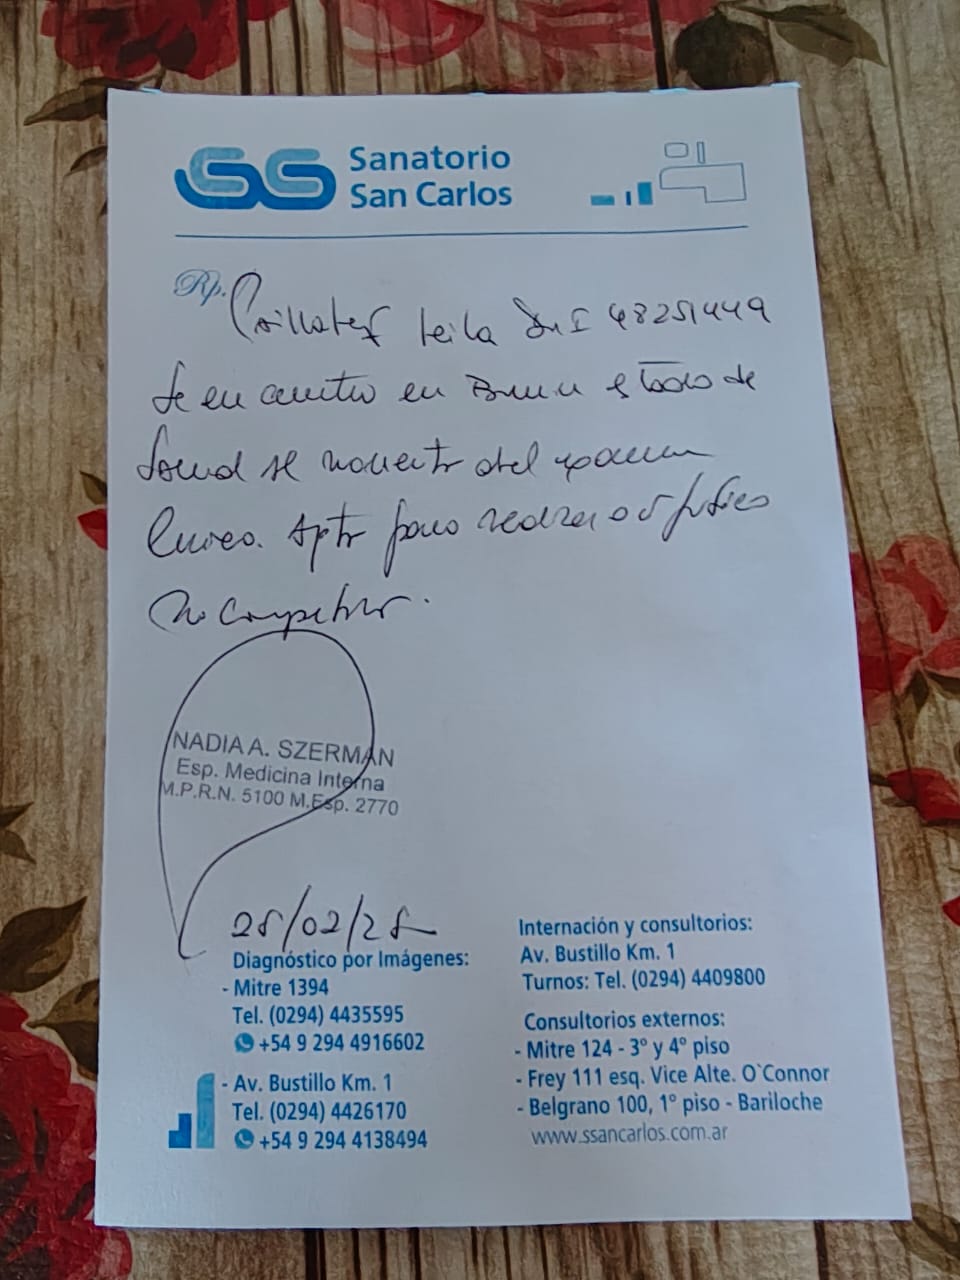 Sanatorio
San Carlos
Rp.
Leila DNI 48251449
Se encuentra en Buen estado de
Salud al momento del examen
clínico. Apta para realizar act física
no competitiva.
NADIA A. SZERMAN
Esp. Medicina Interna
M.P.R.N. 5100 M.Esp. 2770
25/02/25
Diagnóstico por Imágenes:
- Mitre 1394
Tel. (0294) 4435595
+54 9 294 4916602
- Av. Bustillo Km. 1
Tel. (0294) 4426170
+54 9 294 4138494
Internación y consultorios:
Av. Bustillo Km. 1
Turnos: Tel. (0294) 4409800
Consultorios externos:
- Mitre 124 - 3° y 4° piso
- Frey 111 esq. Vice Alte. O`Connor
- Belgrano 100, 1° piso - Bariloche
www.ssancarlos.com.ar